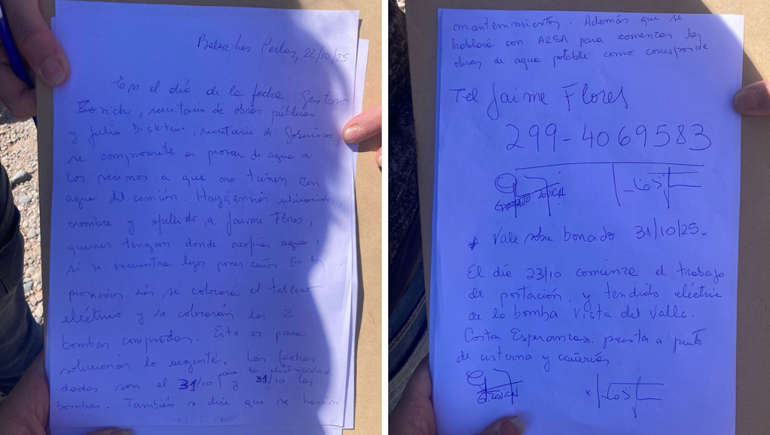 Balsa Las Perlas, 22/10/25
En el día de la fecha Gustavo
secretario de obras públicas
y Julio secretario de Gobierno,
se compromete a proveer de agua a
los vecinos a que no tienen con
agua del común. ubicación
nombre y apellido, a Jaime Flores,
quienes tengan donde acopiar agua,
si se encuentra lejos poner En los
proximos días se colocará el
electrico y se colocarán las 2
bombas compradas. Esto es para
solucionar lo urgente. Las fechas
dadas son el 31/10 para la electricidad y 31/10 las
bombas. También se dice que se harán
mantenimientos. Además que se
hablará con ARSA para comenzar las
obras de agua potable como corresponde.
Tel Jaime Flores
299-4069583
Vale sobre bonado 31/10/25-
El día 23/10 comienza el trabajo
de y tendido eléctrico
de la bomba Vista del Valle.
Costa Esperanza, puesta a punto
de cisterna y cañerías.